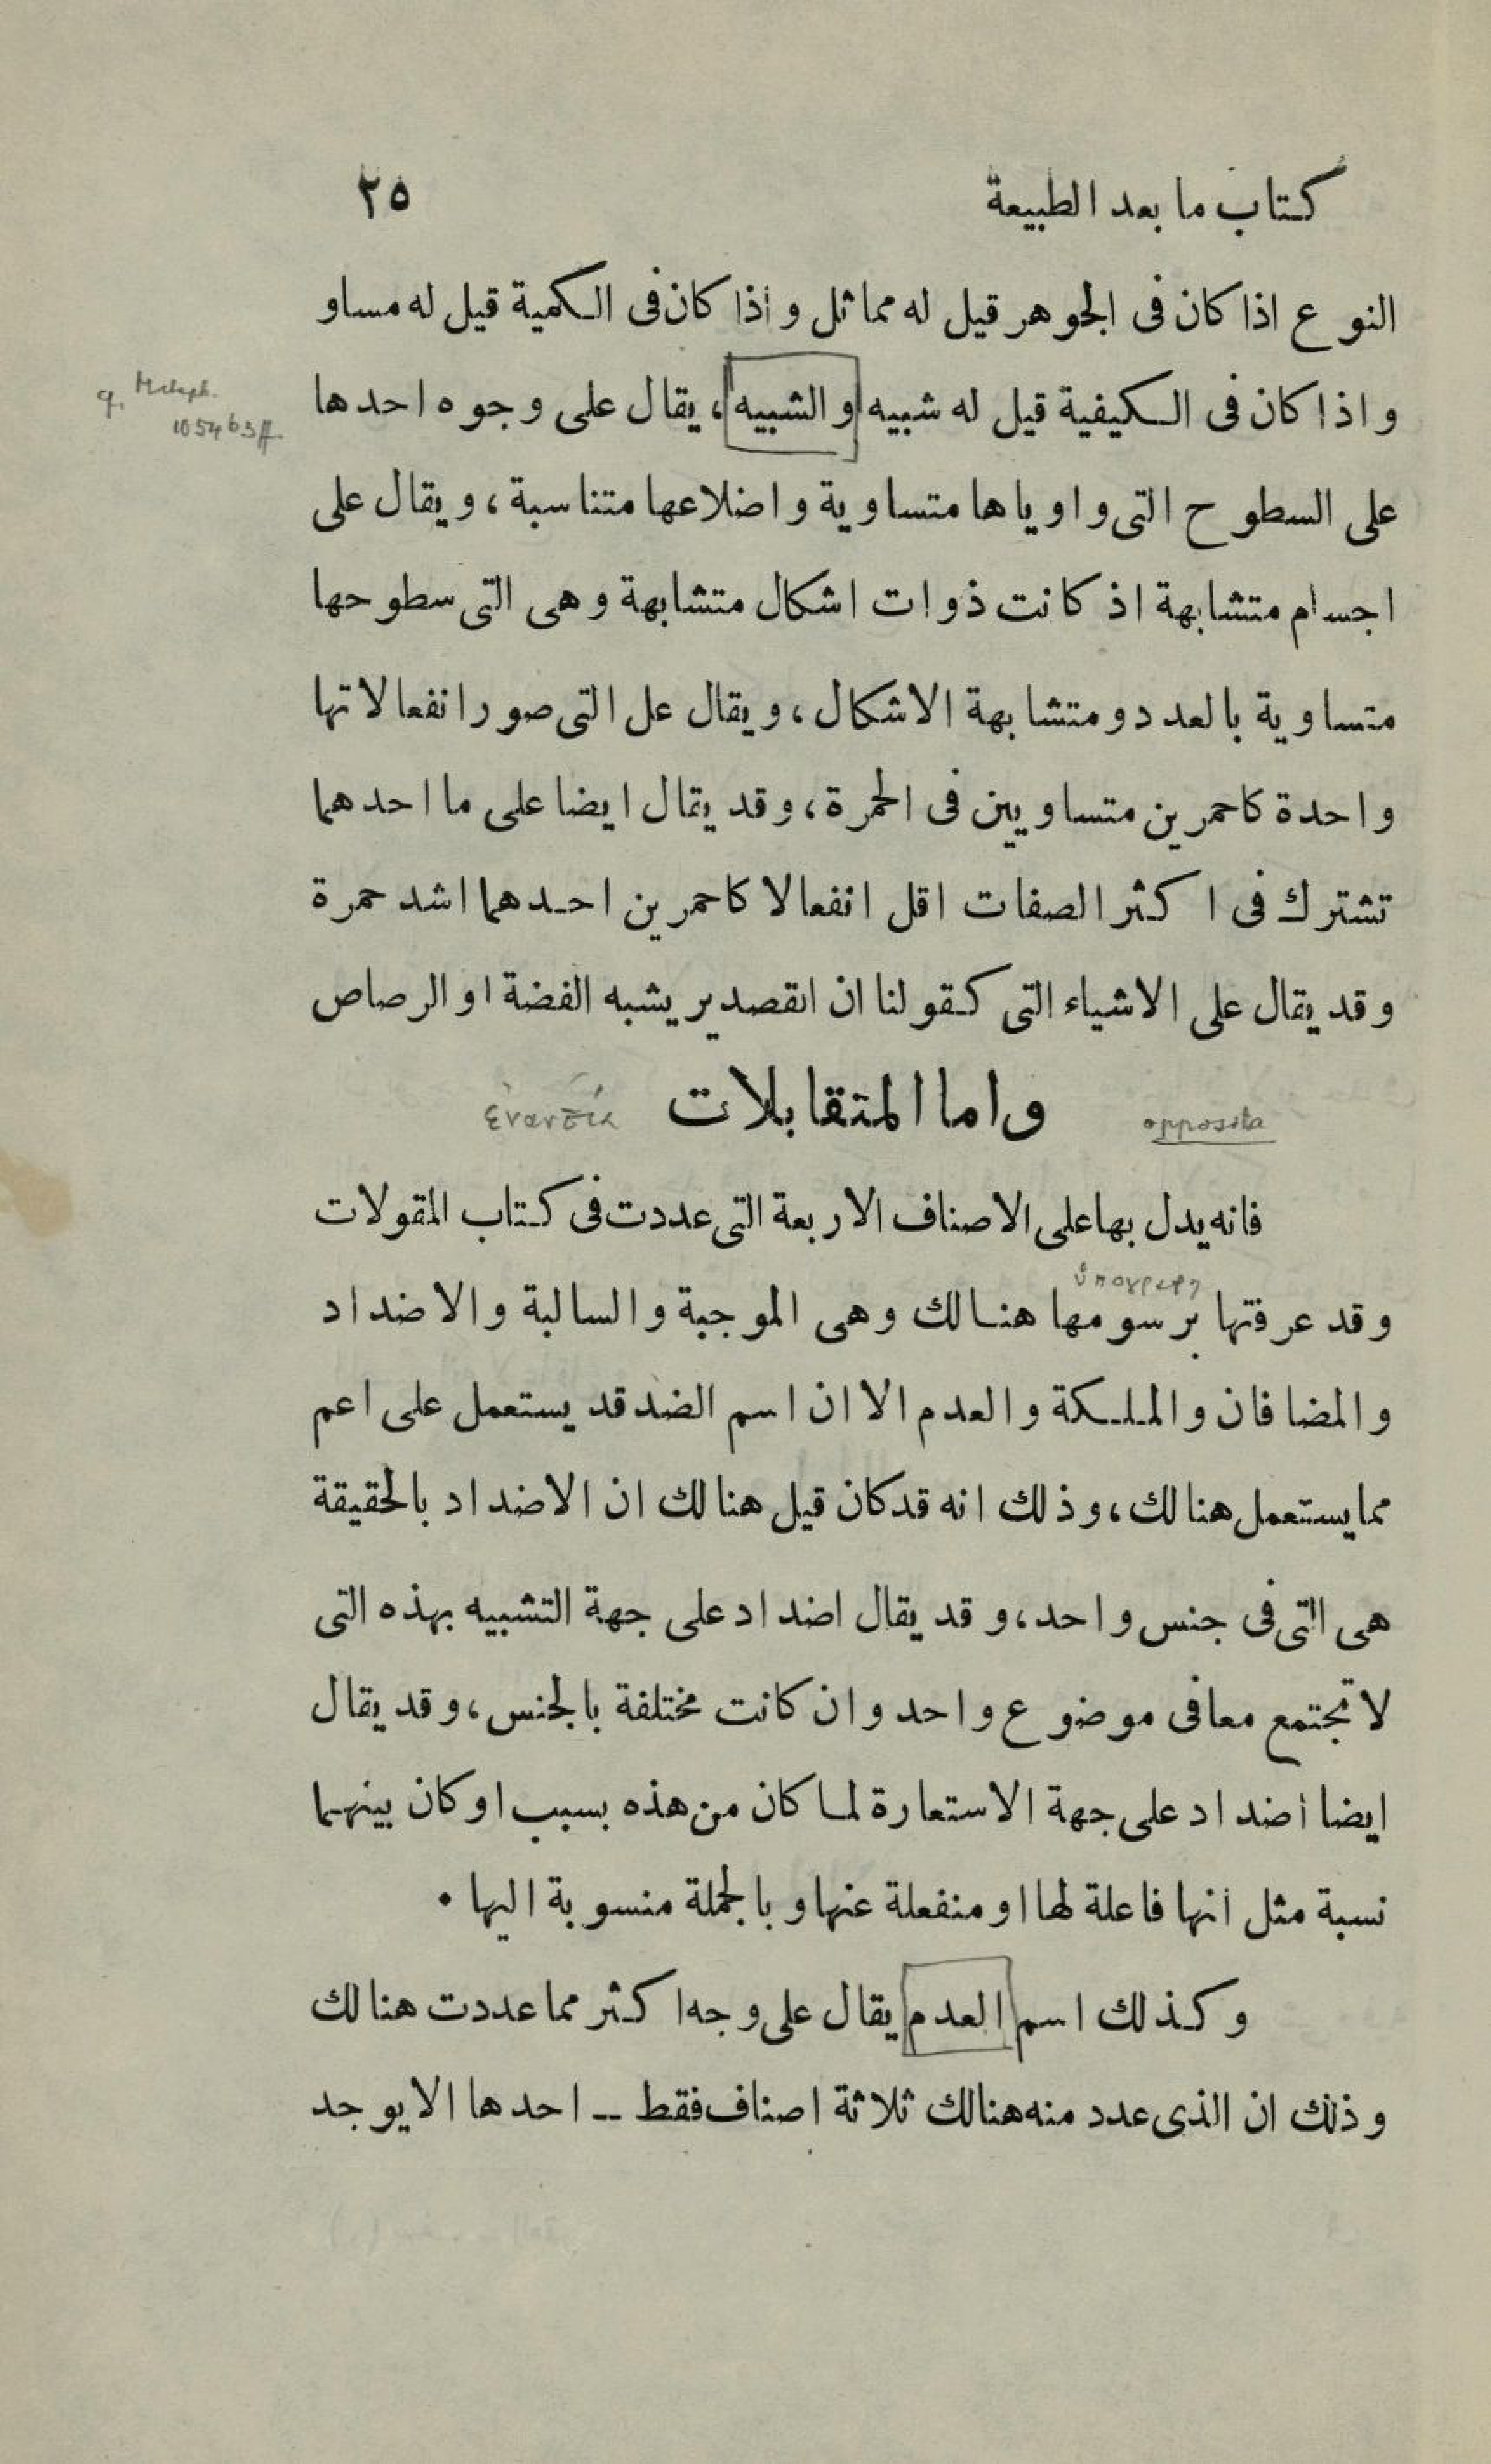 كتاب ما بعد الطبيعة ٢٥
النوع اذا كان فى الجوهر قيل له مماثل واذا كان فى الكمية قيل له مساو
واذا كان فى الكيفية قيل له شبيه والشبيه، يقال على وجوه احدها
Metaph.
1054b3ff.
على السطوح التى واوياها متساوية واضلاعها متناسبة، ويقال على
اجسام متشابهة اذ كانت ذوات اشكال متشابهة وهى التى سطوحها
متساوية بالعدد ومتشابهة الاشكال، ويقال عل التى صور انفعالاتها
واحدة كاحمرين متساويين فى الحمرة، وقد يقال ايضا على ما احدهما
تشترك فى اكثر الصفات اقل انفعالا كاحمرين احدهما اشد حمرة
وقد يقال على الاشياء التى كقولنا ان القصدير يشبه الفضة او الرصاص
واما المتقابلات
opposita
ἐναντία
فانه يدل بها على الاصناف الاربعة التى عددت فى كتاب المقولات
وقد عرفتها برسومها هنالك وهى الموجبة والسالبة والاضداد
والمضافان والملكة والعدم الا ان اسم الضد قد يستعمل على اعم
مما يستعمل هنالك، وذلك انه قد كان قيل هنالك ان الاضداد بالحقيقة
هى التى فى جنس واحد، وقد يقال اضداد على جهة التشبيه بهذه التى
لا تجتمع معا فى موضوع واحد وان كانت مختلفة بالجنس، وقد يقال
ايضا اضداد على جهة الاستعارة لما كان من هذه بسبب او كان بينهما
نسبة مثل انها فاعلة لها او منفعلة عنها وبالجملة منسوبة اليها ٠
وكذلك اسم العدم يقال على وجه اكثر مما عددت هنالك
وذلك ان الذى عدد منه هنالك ثلاثة اصناف فقط ــ احدها الا يوجد